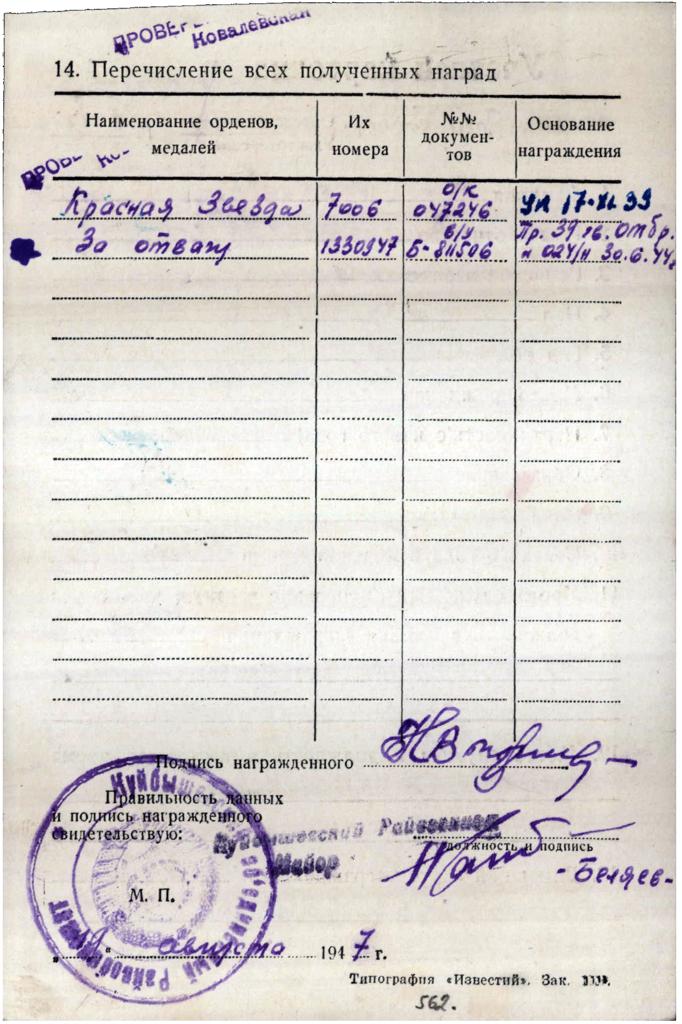 Ковалевская
14. Перечисление всех полученных наград
Наименование орденов, медалей
Их номера
№№ документов
Основание награждения
Красная Звезда 7006 о/к 047246 Ук 17-XI 39
За отвагу 1330947 Б- Пр. 39 гв. отбр. 024/н 30.6.44г
Подпись награжденного
Правильность данных
и подпись награжденного
свидетельствую:
Куйбышевский Райвоенком
Майор
должность и подпись
-Беляев-
М. П.
августа 1947 г.
Типография «Известий». Зак.
562.